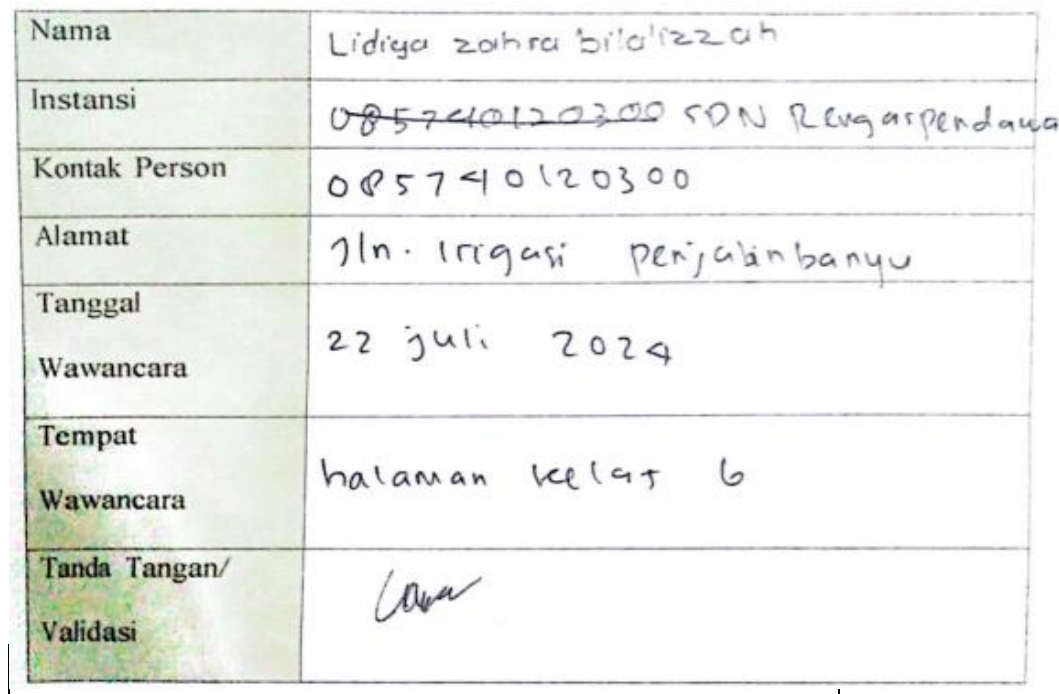 Nama Lidiya zahra bilalizzah
Instansi 085740120300 SDN Rengaspendawa
Kontak Person 085740120300
Alamat Jln. Irigasi penjalinbanyu
Tanggal
Wawancara
22 juli 2024
Tempat
Wawancara
halaman kelas 6
Tanda Tangan/
Validasi